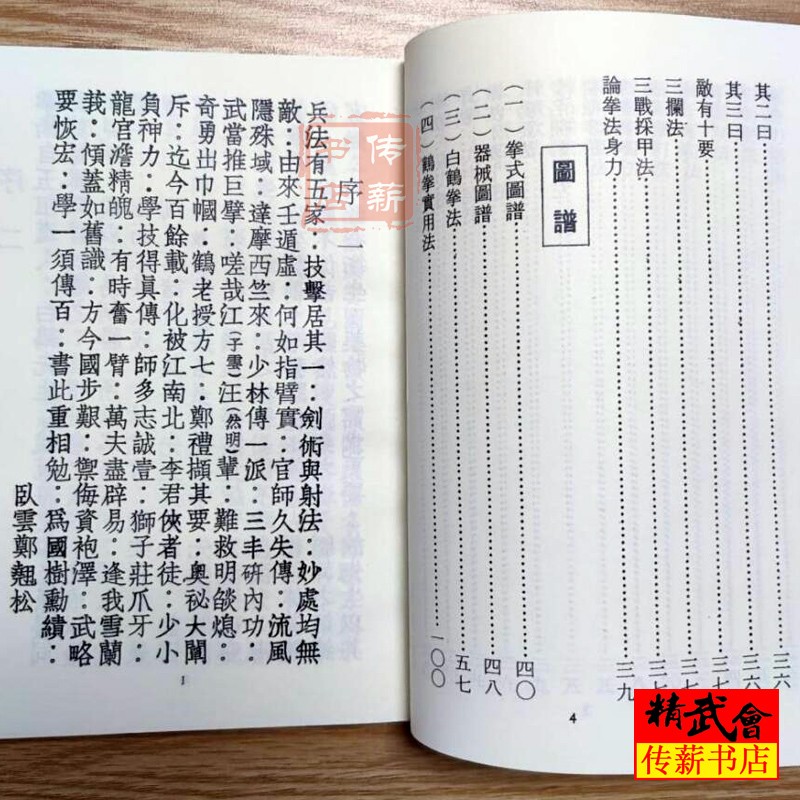 其二曰…………三六
其三曰…………三六
敵有十要…………三七
三攔法…………三七
三戰採甲法…………三七
論拳法身力…………三九
圖譜
(一)拳式圖譜…………四〇
(二)器械圖譜…………四八
(三)白鶴拳法…………五七
(四)鶴拳實用法…………一〇〇
4
序一
兵法有五家:技擊居其一:劍術與射法:妙處均無
敵:由來壬遁虛:何如指臂實:官師久失傳:流風
隱殊域:達摩西竺來:少林傳一派:三丰硏內功:
武當推巨擘:嗟哉江(子雲)汪(然明)輩:難救明燄熄:
奇勇出巾幗:鶴老授方七:鄭禮擷其要:奧祕大闡
斥:迄今百餘載:化被江南北:李君俠者徒:少小
負神力:學技得眞傳:師多志誠壹:獅子莊爪牙:
龍宮澹精魄:有時奮一臂:萬夫盡辟易:逢我雪蘭
莪:傾蓋如舊識:方今國步艱:禦侮資袍澤:武略
要恢宏:學一須傳百:書此重相勉:爲國樹勳績:
臥雲鄭翹松
1
传薪书店
精武會
传薪书店